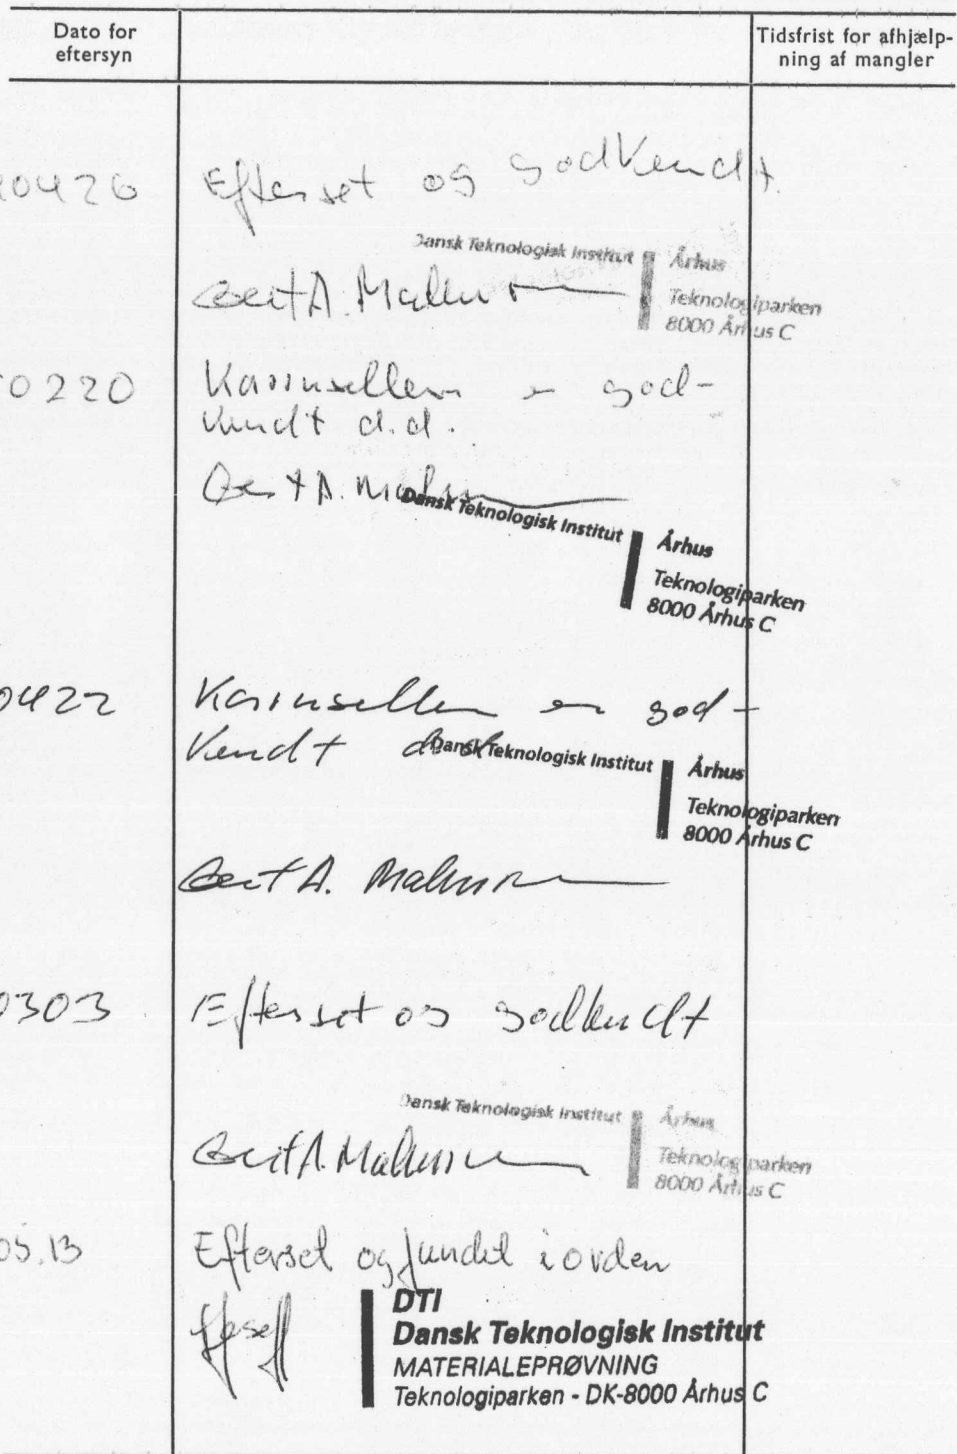 Dato for
eftersyn
Tidsfrist for afhjælp-
ning af mangler
0426 Efterset og godkendt.
Dansk Teknologisk Institut Århus
Teknologiparken
8000 Århus C
Gert A.
0220 Karrusellen er god-
kendt d.d.
Gert A.
Dansk Teknologisk Institut Århus
Teknologiparken
8000 Århus C
0422 Karrusellen er god-
kendt d.d.
Dansk Teknologisk Institut Århus
Teknologiparken
8000 Århus C
Gert A.
0303 Efterset og godkendt
Dansk Teknologisk Institut Århus
Teknologiparken
8000 Århus C
Gert A.
05.13 Efterset og fundet i orden
DTI
Dansk Teknologisk Institut
MATERIALEPRØVNING
Teknologiparken - DK-8000 Århus C